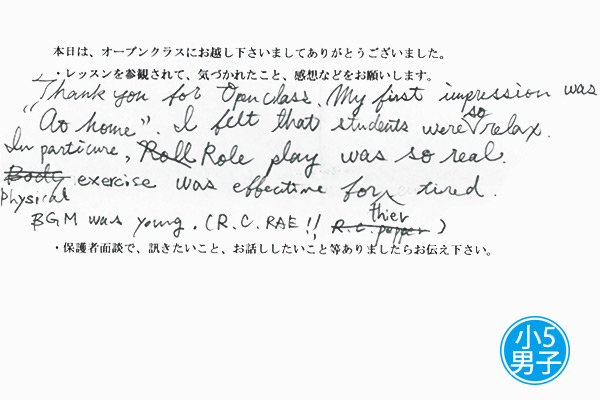 本日は、オープンクラスにお越し下さいましてありがとうございました。
・レッスンを参観されて、気づかれたこと、感想などをお願いします。
Thank you for Open class. My first impression was
"At home". I felt that students were so relax.
In particure, Roll Role play was so real.
Body exercise was effective for tired.
physical
thier
BGM was young. (R.C. RAE!! R.C. popper)
・保護者面談で、訊きたいこと、お話ししたいこと等ありましたらお伝え下さい。
小5
男子